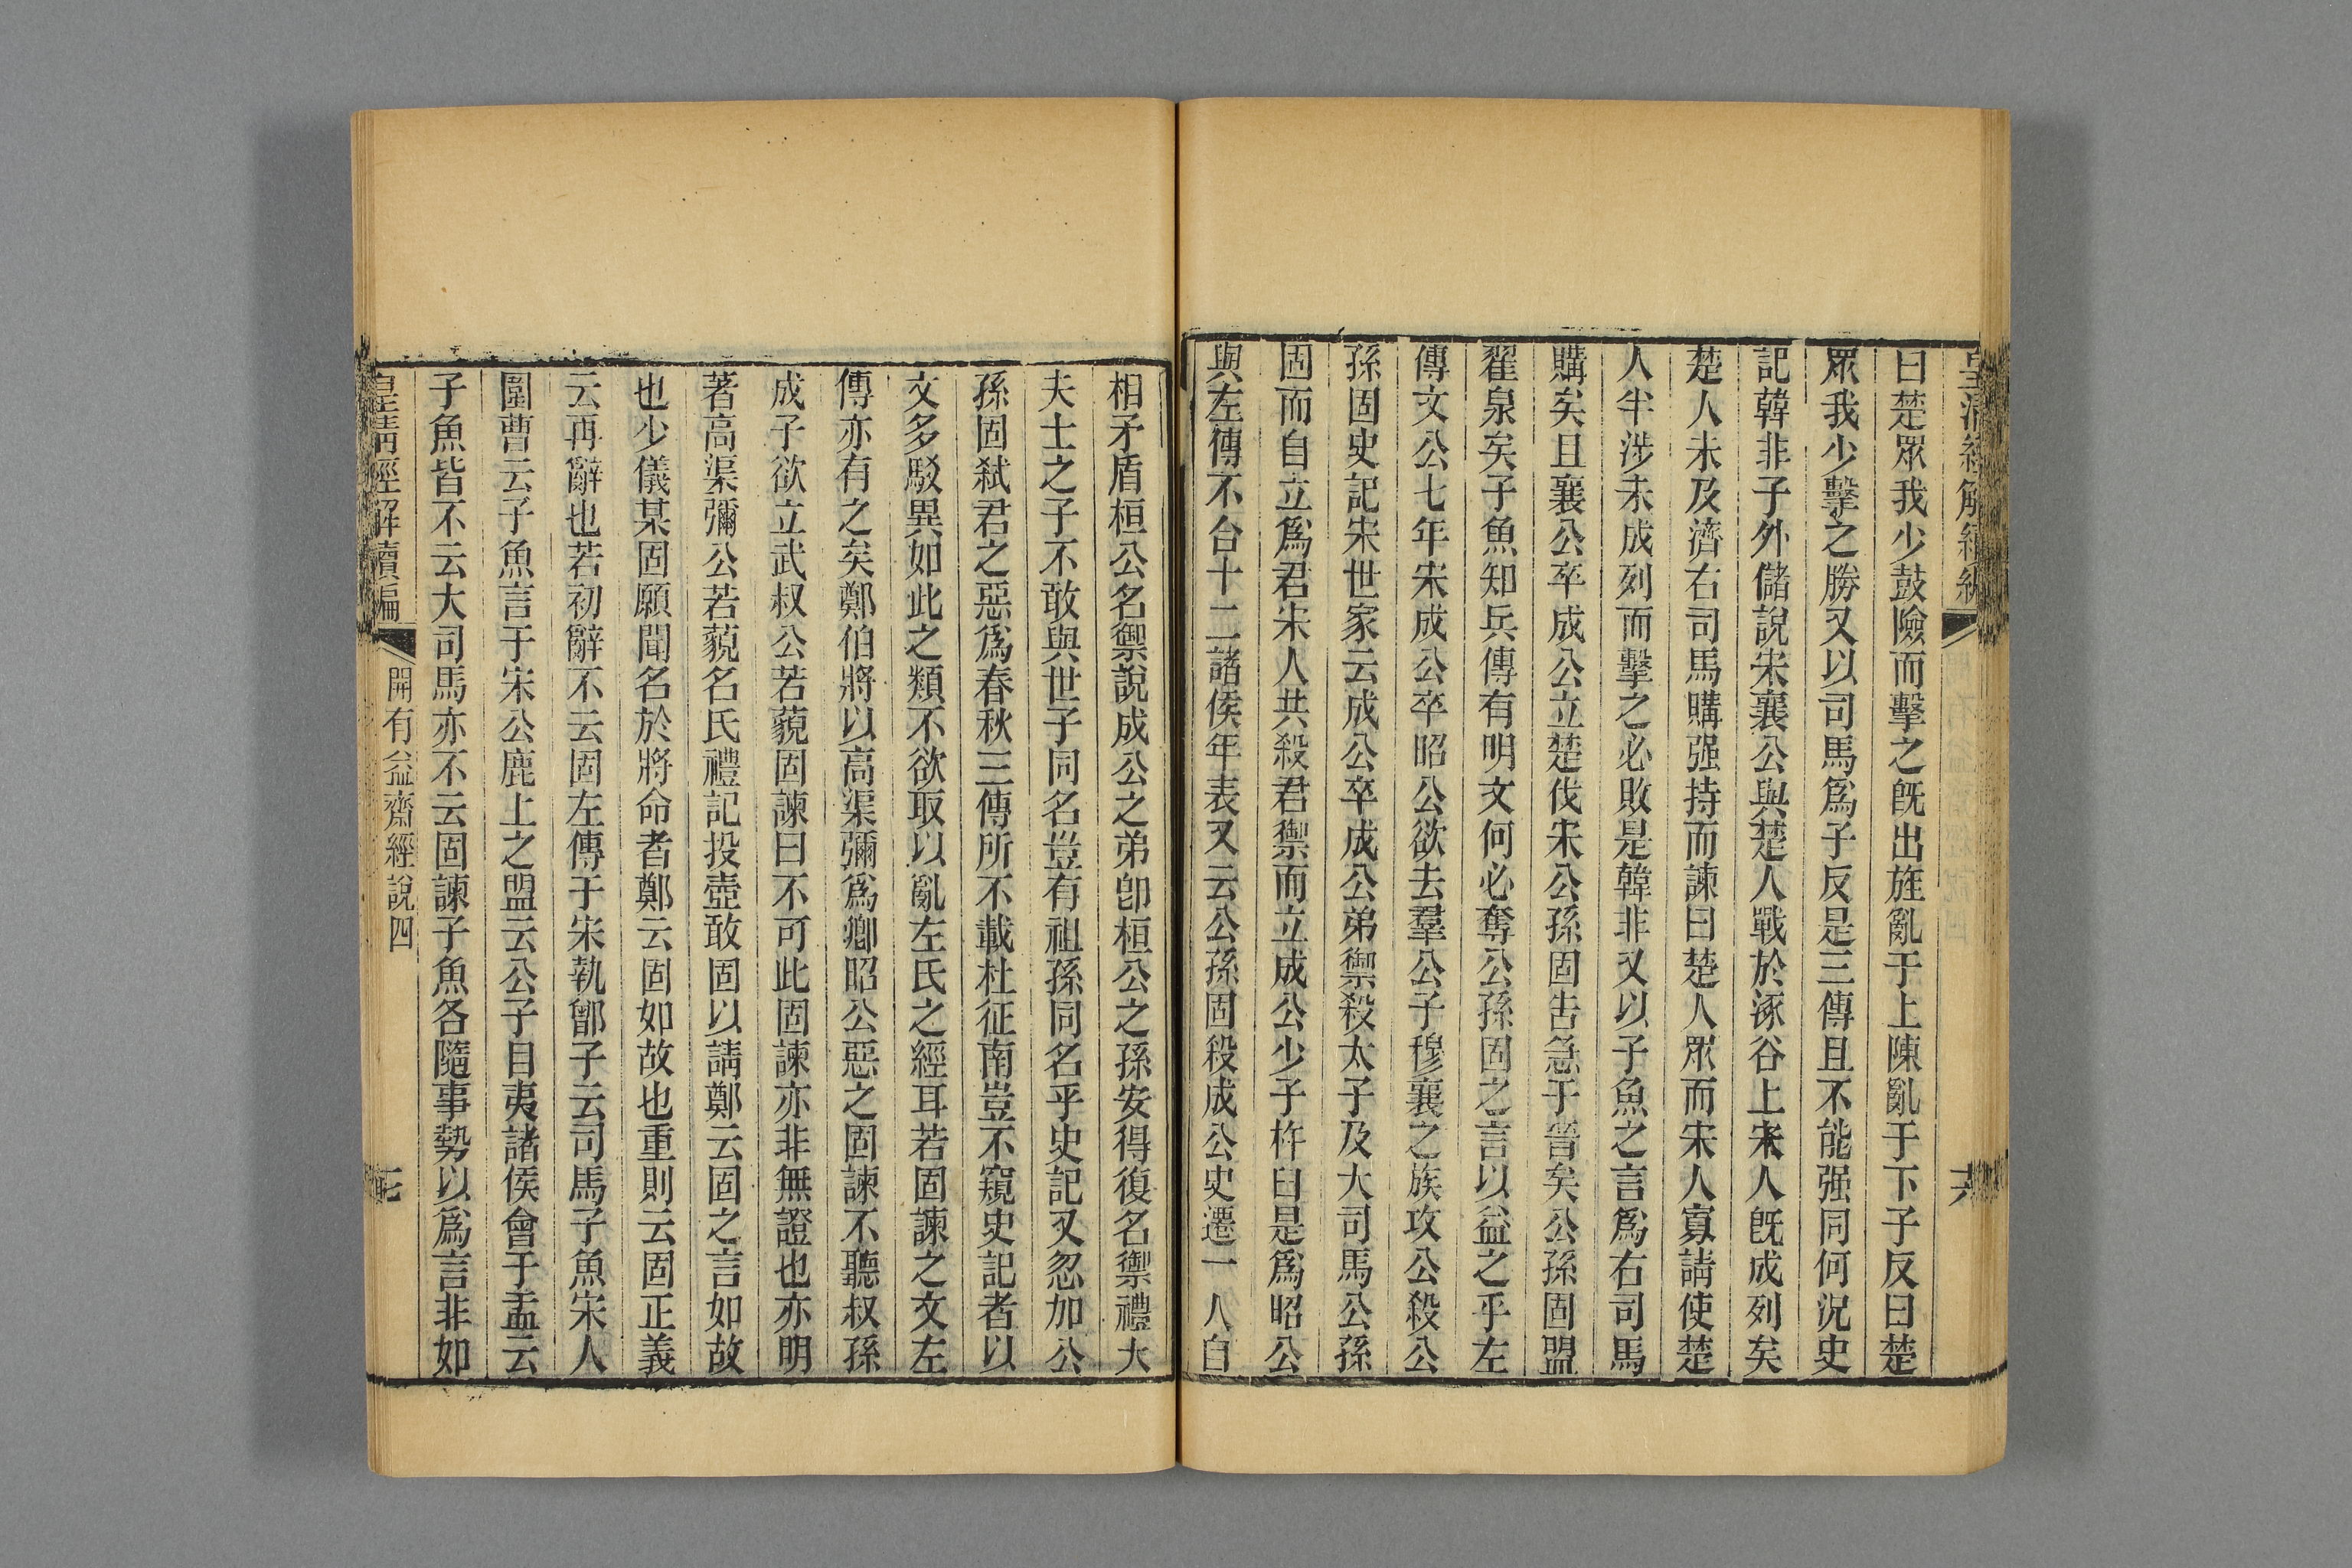 皇清經解續編
六
曰楚眾我少鼓險而擊之旣出旌亂于上陳亂于下子反曰楚
眾我少擊之勝又以司馬爲子反是三傳且不能强同何況史
記韓非子外儲說宋襄公與楚人戰於涿谷上宋人旣成列矣
楚人未及濟右司馬購强持而諫曰楚人眾而宋人寡請使楚
人半涉未成列而擊之必敗是韓非又以子魚之言爲右司馬
購矣且襄公卒成公立楚伐宋公孫固告急于晉矣公孫固盟
翟泉矣子魚知兵傳有明文何必奪公孫固之言以益之乎左
傳文公七年宋成公卒昭公欲去羣公子穆襄之族攻公殺公
孫固史記宋世家云成公卒成公弟禦殺太子及大司馬公孫
固而自立爲君宋人共殺君禦而立成公少子杵臼是爲昭公
與左傳不合十二諸侯年表又云公孫固殺成公史遷一人自
相矛盾桓公名禦說成公之弟卽桓公之孫安得復名禦禮大
夫士之子不敢與世子同名豈有祖孫同名乎史記又忽加公
孫固弑君之惡爲春秋三傳所不載杜征南豈不窺史記者以
文多駁異如此之類不欲取以亂左氏之經耳若固諫之文左
傳亦有之矣鄭伯將以高渠彌爲卿昭公惡之固諫不聽叔孫
成子欲立武叔公若藐固諫曰不可此固諫亦非無證也亦明
著高渠彌公若藐名氏禮記投壺敢固以請鄭云固之言如故
也少儀某固願聞名於將命者鄭云固如故也重則云固正義
云再辭也若初辭不云固左傳于宋執鄫子云司馬子魚宋人
圍曹云子魚言于宋公鹿上之盟云公子目夷諸侯會于盂云
子魚皆不云大司馬亦不云固諫子魚各隨事勢以爲言非如
皇清經解續編
開有益齋經說四
七